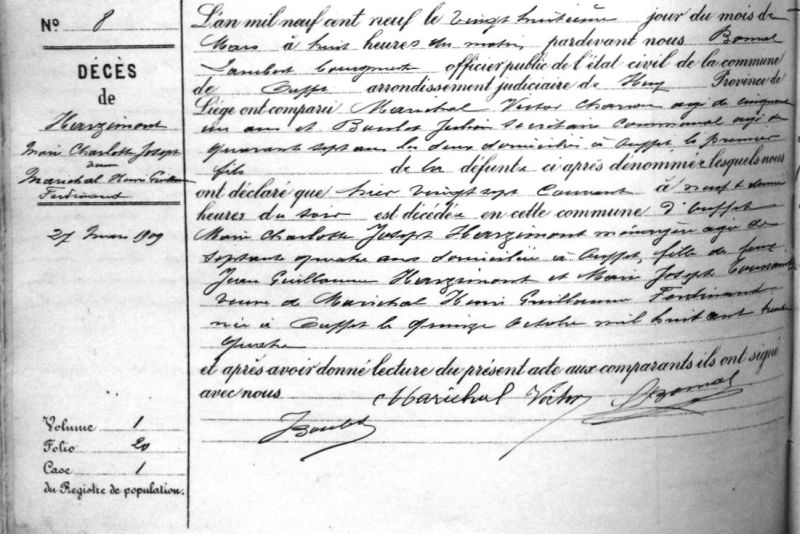 N° 8
DÉCÈS
de
Harzimont
Marie Charlotte Joseph
Maréchal Henri Guillaume
Ferdinand
27 Mars 1909
Volume 1
Folio 20
Case 1
du Registre de population.
L'an mil neuf cent neuf le vingt huitième jour du mois de
Mars à huit heures du matin pardevant nous Bomal
Lambert officier public de l'état civil de la commune
de Ouffet arrondissement judiciaire de Huy Province de
Liége ont comparu Maréchal Victor Charron agé de cinquante
un ans et Boulet Julien Secrétaire Communal agé de
quarante sept ans les deux domiciliés à Ouffet, le premier
fils de la défunte ci après dénommée lesquels nous
ont déclaré que hier vingt sept Courant à neuf & demie
heures du soir est décédée en cette commune d'Ouffet
Marie Charlotte Joseph Harzimont ménagère agée de
septante quatre ans domiciliée à Ouffet, fille de feux
Jean Guillaume Harzimont et Marie Joseph
veuve de Maréchal Henri Guillaume Ferdinand
née à Ouffet le quinze Octobre mil huit cent trente
quatre
et après avoir donné lecture du présent acte aux comparants ils ont signé
avec nous Maréchal Victor Bomal
J Boulet